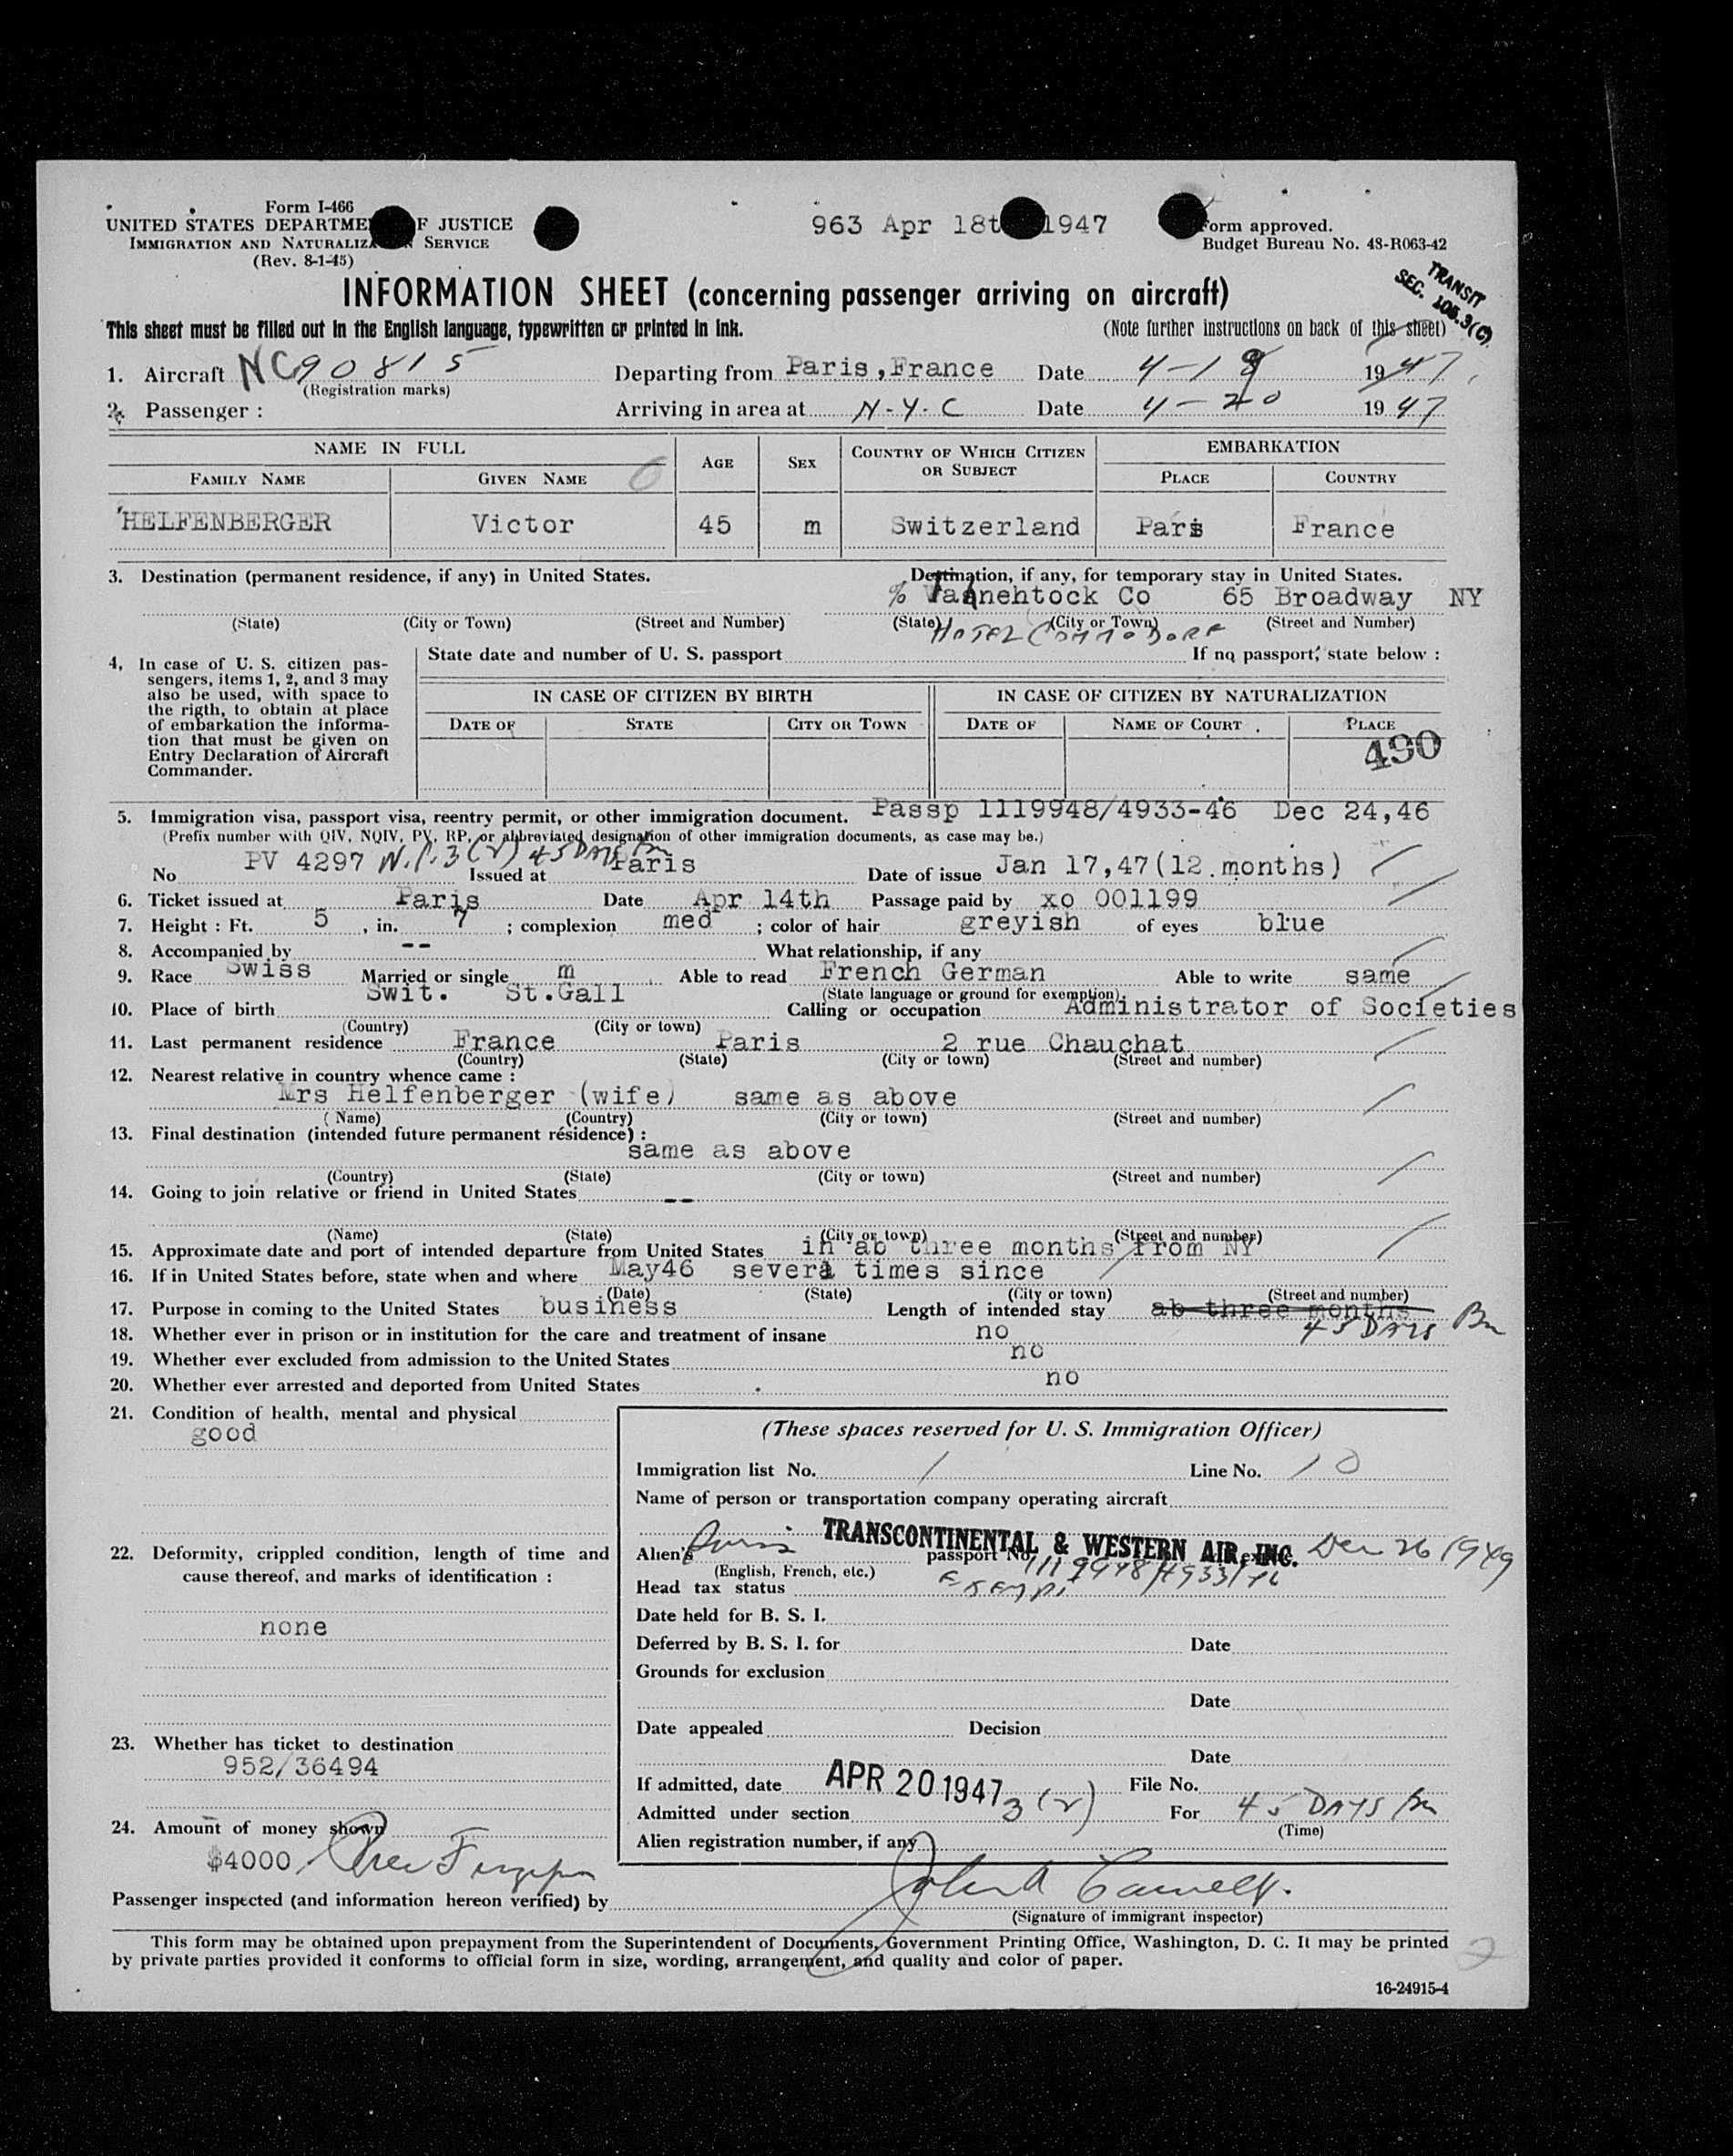 Form I-466
UNITED STATES DEPARTME F JUSTICE
IMMIGRATION AND NATURALIZA N SERVICE
(Rev. 8-1-45)
963 Apr 18t 1947
Form approved.
Budget Bureau No. 43-R063-42
TRANSIT
SEC. 105.3(C)
INFORMATION SHEET (concerning passenger arriving on aircraft)
This sheet must be filled out in the English language, typewritten or printed in ink. (Note further instructions on back of this sheet)
1. Aircraft NC90815 Departing from Paris, France Date 4-18 1947
(Registration marks)
2. Passenger : Arriving in area at N.Y.C Date 4-20 1947
NAME IN FULL AGE SEX COUNTRY OF WHICH CITIZEN OR SUBJECT EMBARKATION
FAMILY NAME GIVEN NAME PLACE COUNTRY
HELFENBERGER Victor 45 m Switzerland Paris France
3. Destination (permanent residence, if any) in United States. Destination, if any, for temporary stay in United States.
% Co 65 Broadway NY
(State) (City or Town) (Street and Number) (State) (City or Town) (Street and Number)
HOTEL COMMODORE
4. In case of U. S. citizen pas-
sengers, items 1, 2, and 3 may
also be used, with space to
the rigth, to obtain at place
of embarkation the informa-
tion that must be given on
Entry Declaration of Aircraft
Commander.
State date and number of U. S. passport If no passport, state below :
IN CASE OF CITIZEN BY BIRTH IN CASE OF CITIZEN BY NATURALIZATION
DATE OF STATE CITY OR TOWN DATE OF NAME OF COURT PLACE
490
5. Immigration visa, passport visa, reentry permit, or other immigration document. Passp 1119948/4933-46 Dec 24,46
(Prefix number with QIV, NQIV, PV, RP, or abbreviated designation of other immigration documents, as case may be.)
No PV 4297 3(2) 45 DAYS Issued at Paris Date of issue Jan 17,47(12 months)
6. Ticket issued at Paris Date Apr 14th Passage paid by xo 001199
7. Height : Ft. 5 , in. 7 ; complexion med ; color of hair greyish of eyes blue
8. Accompanied by -- What relationship, if any
9. Race Swiss Married or single m Able to read French German Able to write same
(State language or ground for exemption)
10. Place of birth Swit. St.Gall Calling or occupation Administrator of Societies
(Country) (City or town)
11. Last permanent residence France Paris 2 rue Chauchat
(Country) (State) (City or town) (Street and number)
12. Nearest relative in country whence came :
Mrs Helfenberger (wife) same as above
(Name) (Country) (City or town) (Street and number)
13. Final destination (intended future permanent résidence) :
same as above
(Country) (State) (City or town) (Street and number)
14. Going to join relative or friend in United States --
(Name) (State) (City or town) (Street and number)
15. Approximate date and port of intended departure from United States in ab three months from NY
16. If in United States before, state when and where May46 severl times since
(Date) (State) (City or town) (Street and number)
17. Purpose in coming to the United States business Length of intended stay ab three months
45 DAYS
18. Whether ever in prison or in institution for the care and treatment of insane no
19. Whether ever excluded from admission to the United States no
20. Whether ever arrested and deported from United States no
21. Condition of health, mental and physical
good
22. Deformity, crippled condition, length of time and
cause thereof, and marks of identification :
none
23. Whether has ticket to destination
952/36494
24. Amount of money shown
$4000
(These spaces reserved for U. S. Immigration Officer)
Immigration list No. 1 Line No. 10
Name of person or transportation company operating aircraft
TRANSCONTINENTAL & WESTERN AIR, INC.
Alien's Swiss passport No. 1119948/4933/46 Dec 26 1949
(English, French, etc.)
Head tax status Exempt
Date held for B. S. I.
Deferred by B. S. I. for Date
Grounds for exclusion
Date
Date appealed Decision
Date
If admitted, date APR 20 1947 File No.
Admitted under section 3(2) For 45 DAYS
(Time)
Alien registration number, if any
Passenger inspected (and information hereon verified) by
(Signature of immigrant inspector)
This form may be obtained upon prepayment from the Superintendent of Documents, Government Printing Office, Washington, D. C. It may be printed
by private parties provided it conforms to official form in size, wording, arrangement, and quality and color of paper.
2
16-24915-4